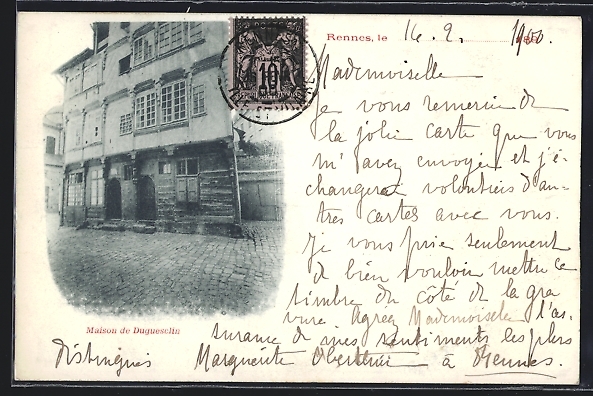 Rennes, le 14. 2. 1900.
Mademoiselle
Je vous remercie de
la jolie carte que vous
m'avez envoyée et j'é-
changerai volontiers d'au-
tres cartes avec vous.
Je vous prie seulement
de bien vouloir mettre ce
timbre du côté de la gra
vure. Agréez Mademoiselle l'as-
surance de mes sentiments les plus
Distingués Marguerite Oberthür à Rennes.
Maison de Duguesclin
10